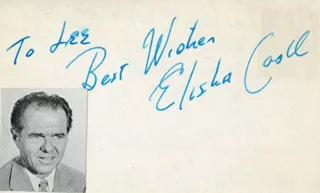 To LEE
Best Wishes
Elisha Cook